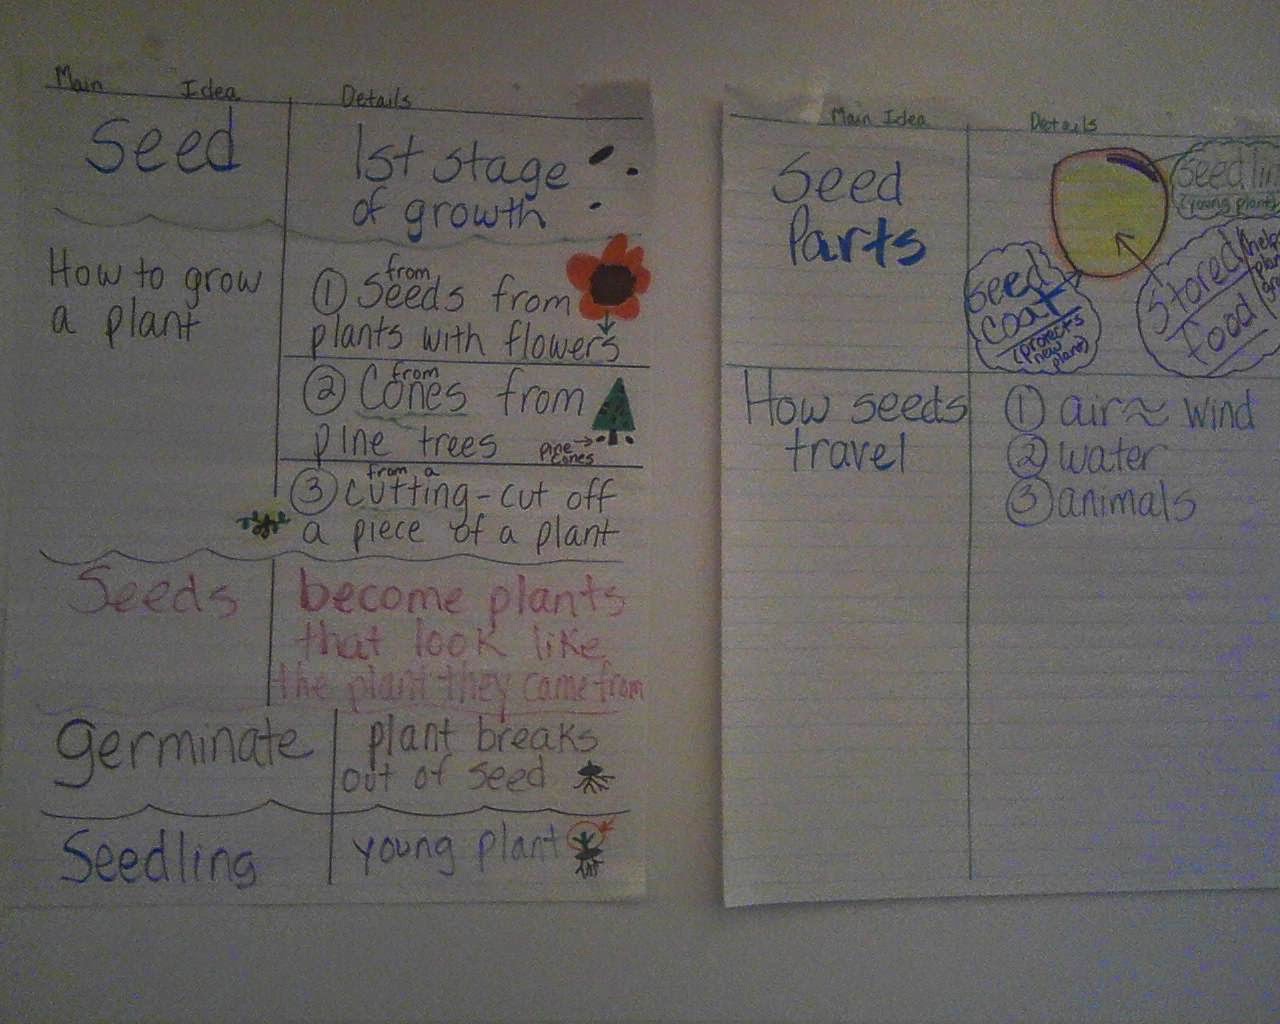 Main Idea Details
Seed
1st stage
of growth
How to grow
a plant
from
① Seeds from
plants with flowers
from
② Cones from
pine trees
pine
cones
from a
③ cutting - cut off
a piece of a plant
Seeds
become plants
that look like
the plant they came from
germinate
plant breaks
out of seed
Seedling
young plant
Main Idea Details
Seed
Parts
Seedlin
(young plant)
Seed
coat
(protects
new
plant)
Stored
food
(helps
plan
How seeds
travel
① air ≈ wind
② water
③ animals